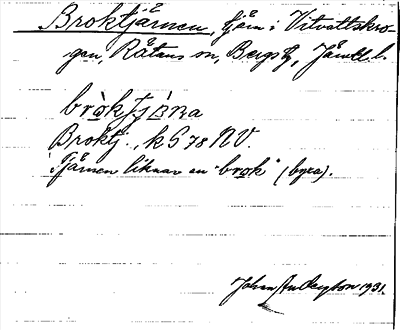 Broktjärnen, tjärn i Vitvattskro-
gen, Råtans sn, Bergs tg, Jämtl. l.
Broktj., k G 78 NV.
Tjärnen liknar en "brok" (byxa).
Johan Andersson 1931.